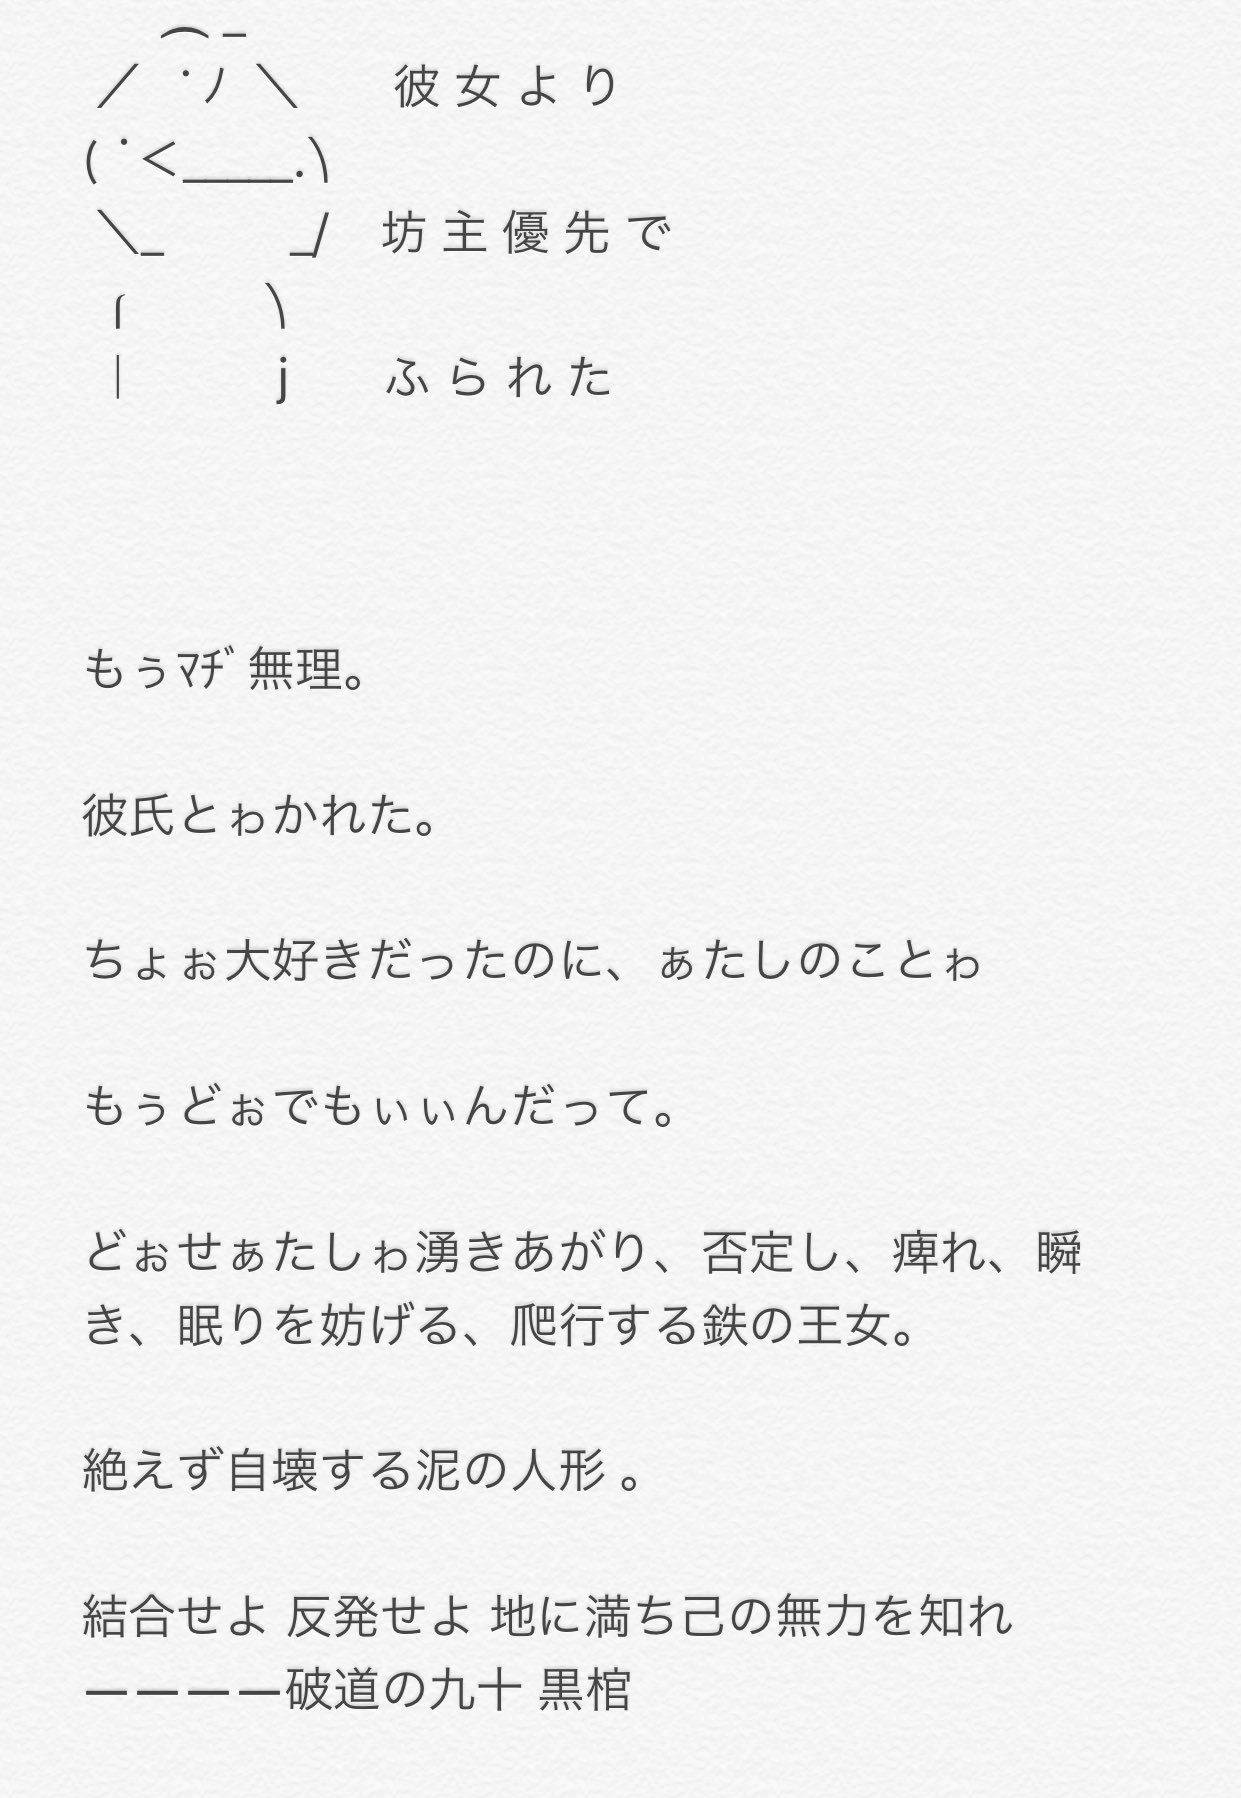 ⌒ −
／ ˙ﾉ ＼ 彼 女 よ り
( ˙＜_____.)
＼_ _/ 坊 主 優 先 で
╭ )
｜ j ふ ら れ た
もぅﾏﾁﾞ無理。
彼氏とゎかれた。
ちょぉ大好きだったのに、ぁたしのことゎ
もぅどぉでもぃぃんだって。
どぉせぁたしゎ湧きあがり、否定し、痺れ、瞬
き、眠りを妨げる、爬行する鉄の王女。
絶えず自壊する泥の人形 。
結合せよ 反発せよ 地に満ち己の無力を知れ
ーーーー破道の九十 黒棺